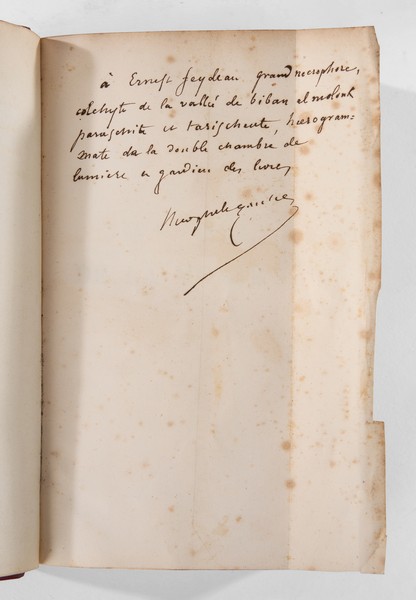 à Ernest feydeau grand necrophore,
colchyte de la vallée de biban el molouk
paraschite et tarischeute, hierogram=
mate de la double chambre de
lumiere et gardien des livres
theophile gautier